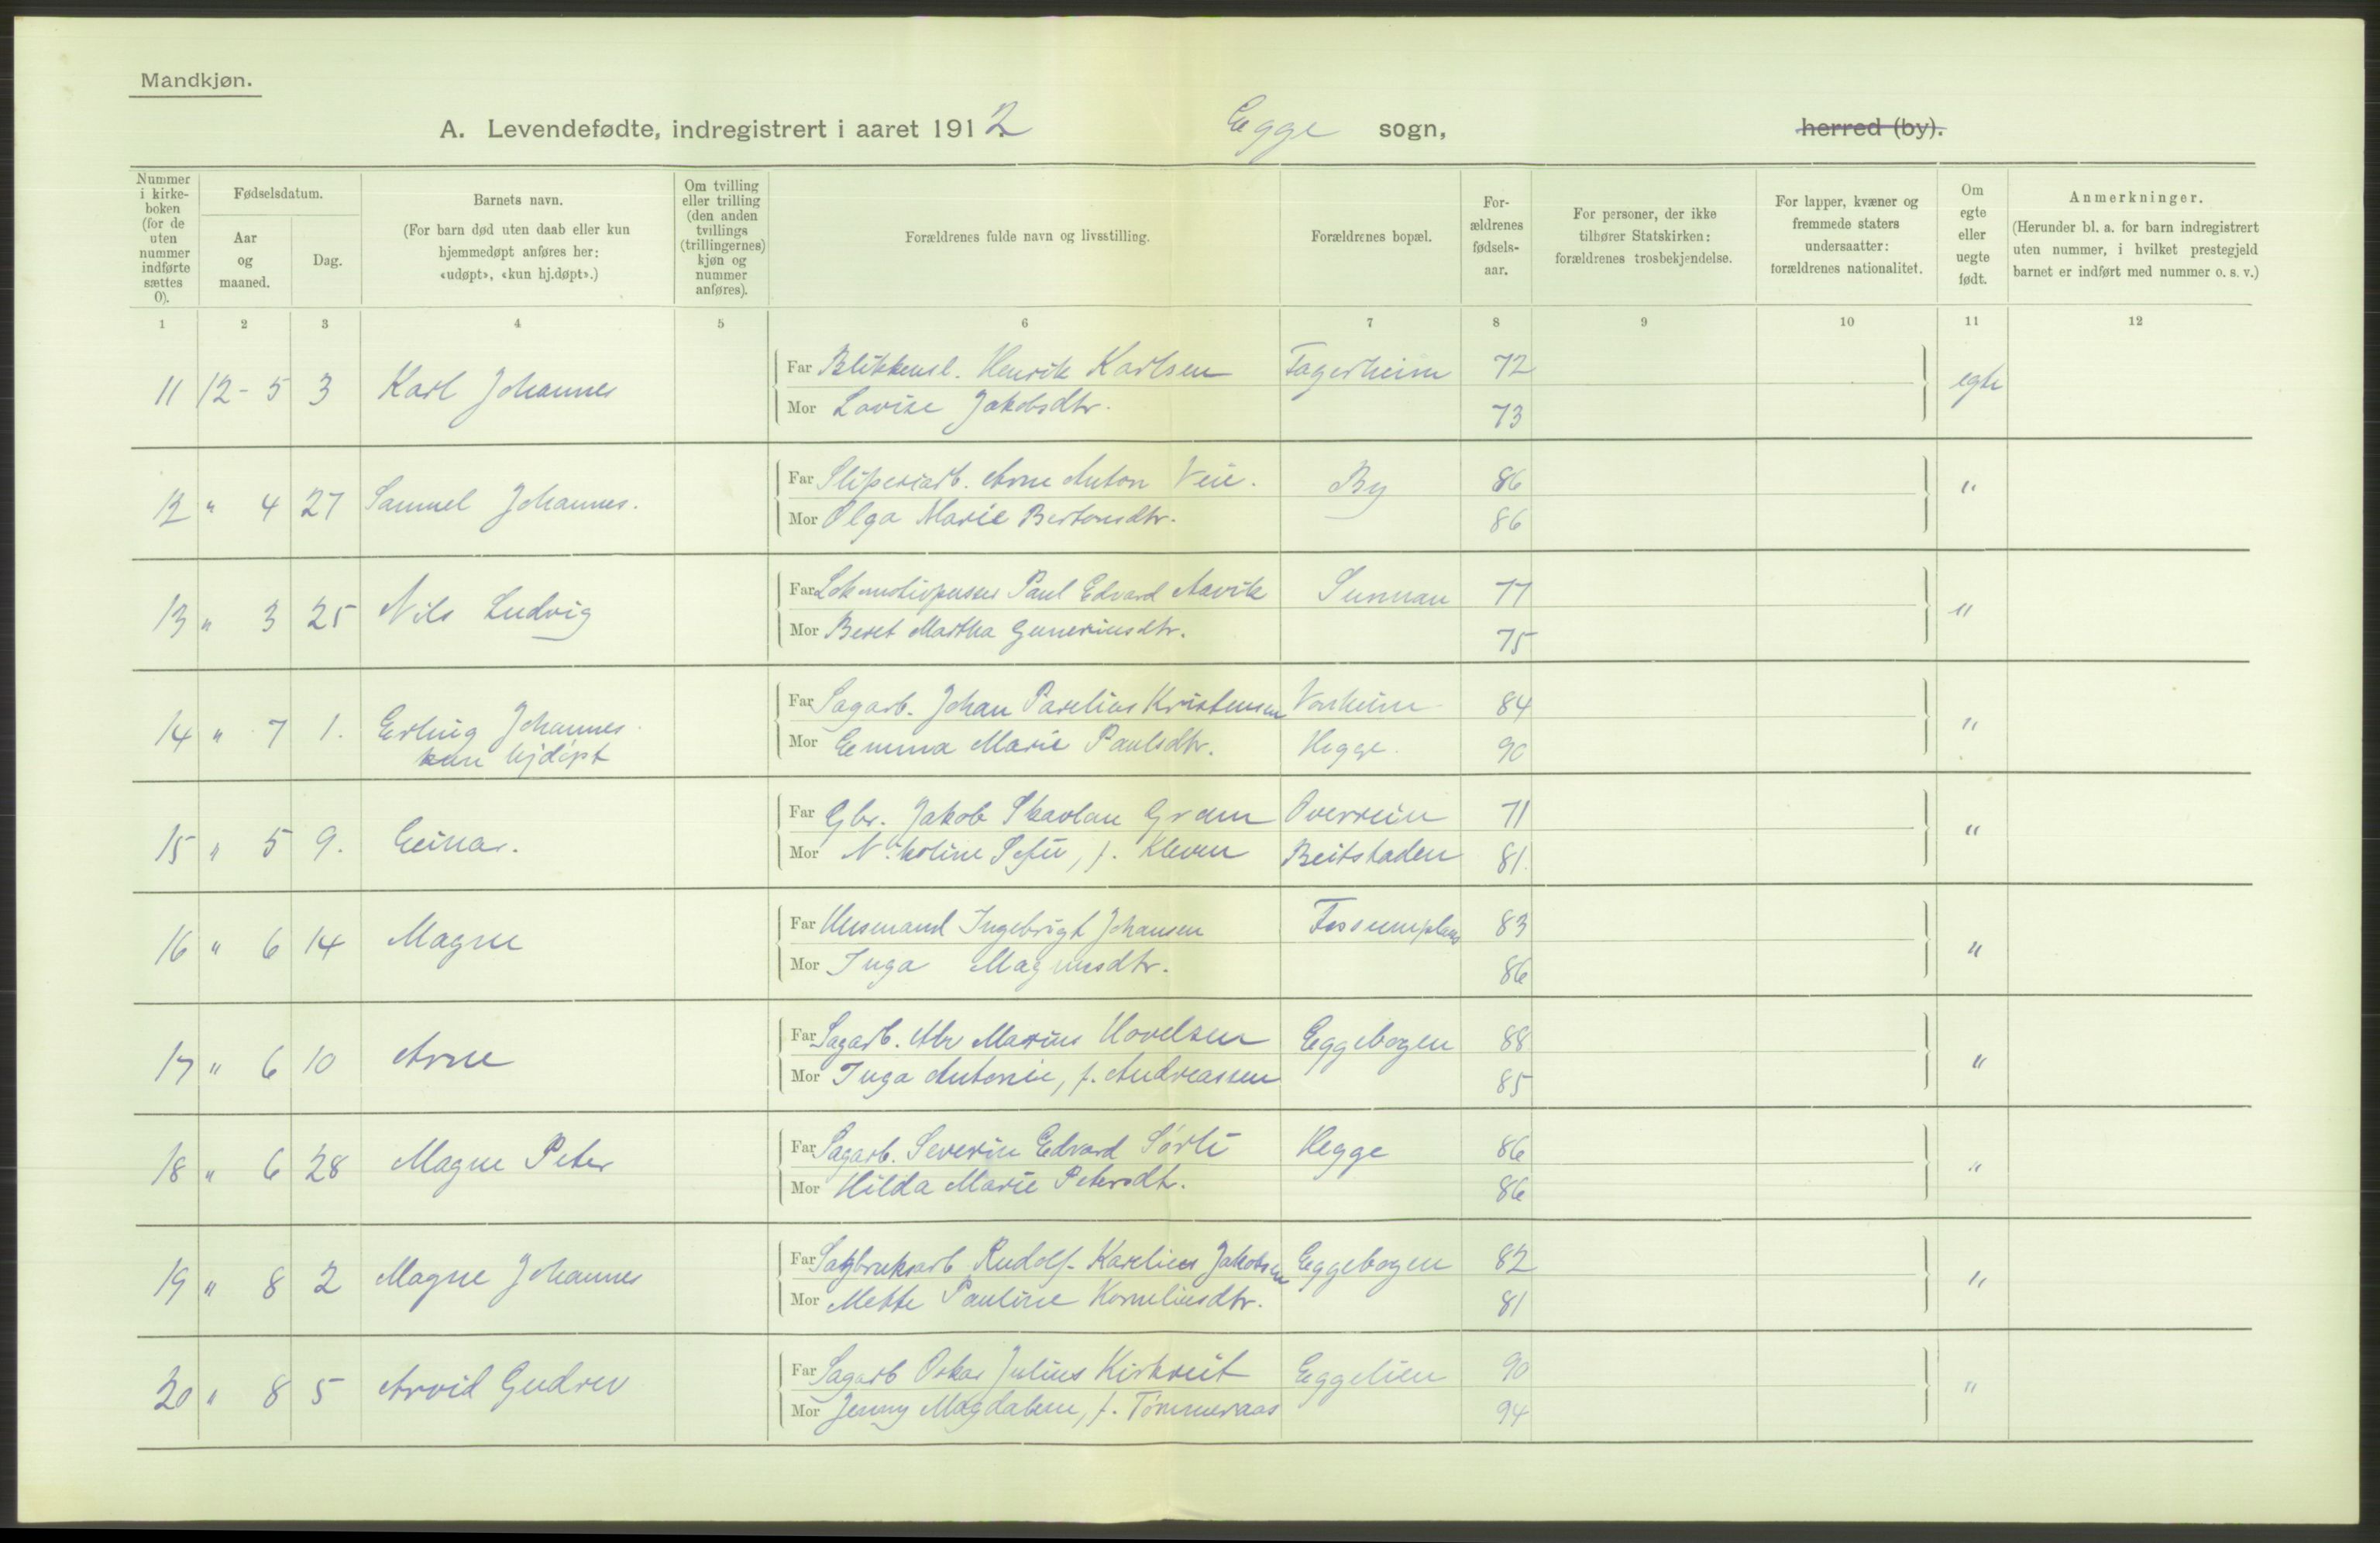 Mandkjøn.
A. Levendefødte, indregistrert i aaret 1912 Egge sogn, herred (by).
Nummer i kirke-boken (for de uten nummer indførte sættes 0).
Fødselsdatum.
Aar og maaned.
Dag.
Barnets navn.
(For barn død uten daab eller kun hjemmedøpt anføres her: «udøpt», «kun hj.døpt».)
Om tvilling eller trilling (den anden tvillings (trillingernes) kjøn og nummer anføres).
Forældrenes fulde navn og livsstilling.
Forældrenes bopæl.
For-ældrenes fødsels-aar.
For personer, der ikke tilhører Statskirken: forældrenes trosbekjendelse.
For lapper, kvæner og fremmede staters undersaatter: forældrenes nationalitet.
Om egte eller uegte født.
Anmerkninger.
(Herunder bl. a. for barn indregistrert uten nummer, i hvilket prestegjeld barnet er indført med nummer o. s. v.)
1 2 3 4 5 6 7 8 9 10 11 12
11 12-5 3 Karl Johannes Far Blikkensl. Henrik Karlsen Fagerheim 72 egte
Mor Lovise Jakobsdtr. 73
12 " 4 27 Samuel Johannes. Far Sliperiarb. Arne Anton Veie. By 86 "
Mor Olga Marie Bertonsdtr. 86
13 " 3 25 Nils Ludvig Far Lokomotivpusser Paul Edvard Aavik Sunnan 77 "
Mor Beret Martha Guneriusdtr. 75
14 " 7 1. Erling Johannes Far Sagarb. Johan Parelius Kristensen Vonheim 84 "
kun hjdøpt Mor Emma Marie Paulsdtr. Hegge. 90
15 " 5 9. Einar. Far Gbr. Jakob Skavlan Gram Overrein 71 "
Mor Nikoline Sefie, f. Kleven Beitstaden 81.
16 " 6 14 Magne Far Husmand Ingebrigt Johansen Fossumplads 83 "
Mor Inga Magnusdtr. 86
17 " 6 10 Arne Far Sagarb. Marius Hovelsen Eggebogen 88 "
Mor Inga Antonie, f. Andreassen 85
18 " 6 28 Magne Peter Far Sagarb. Severin Edvard Sørli Hegge 86 "
Mor Hilda Marie Petersdtr. 86
19 " 8 2 Magne Johannes Far Sagbruksarb Rudolf Karelius Jakobsen Eggebogen 82 "
Mor Mette Pauline Korneliusdtr. 81
20 " 8 5 Arvid Gudrev Far Sagarb Oskar Julius Kirkreit Eggelien 90 "
Mor Jenny Magdalene, f. Tømmeraas 94